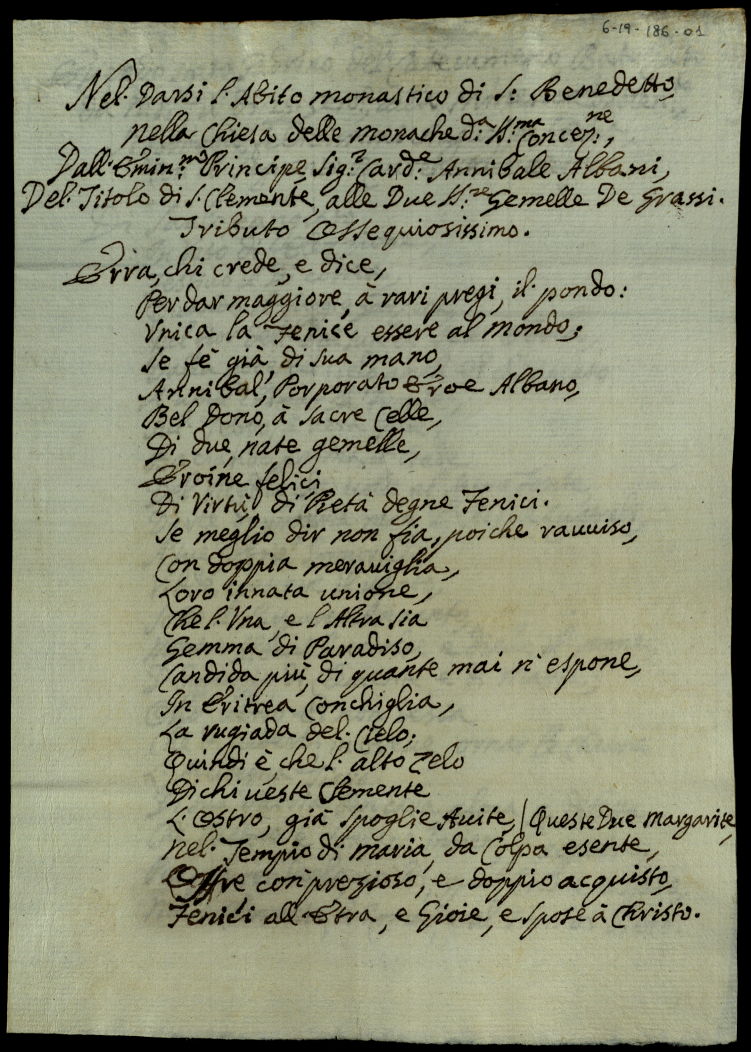 6-19-186-01
Nel. Darsi l. Abito monastico di S: Benedetto,
nella Chiesa delle monache d:a SS:ma Concez:ne,
Dall. Emin:mo Principe, Sig:r Card:e Annibale Albani,
Del. Titolo di S. Clemente, alle Due Gemelle De Grassi.
Tributo Ossequiosissimo.
Erra, chi crede, e dice,
Per dar maggiore, à rari pregi, il pondo:
Vnica la Fenice essere al mondo;
Se fè già, di sua mano,
Annibal, Porporato Eroe Albano,
Bel Dono, à sacre Celle,
Di due, nate gemelle,
Eroine felici
Di Virtù, di Pietà degne Fenici.
Se meglio dir non fia, poiche rauuiso,
Con doppia merauiglia,
Loro innata unione,
Che l. Vna, e l Altra sia
Gemma di Paradiso,
Candida più, di quante mai n' espone,
In Eritrea Conchiglia,
La rugiada del. Cielo;
Quindi è, che l. alto Zelo
Di chi ueste Clemente
L. Ostro, già spoglie Auite, / Queste Due Margarite,
Nel. Tempio di Maria, da Colpa esente,
Offre con prezioso, e doppio acquisto,
Fenici all Etra, e Gioie, e spose à Christo.